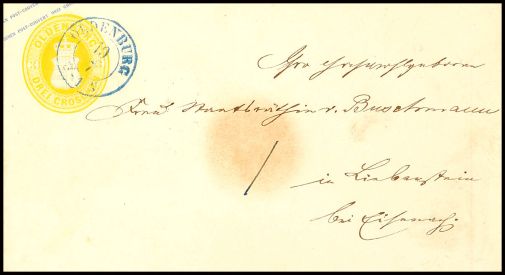 POST-COUVERT
OLDENBURG
DREI GROSCHEN
OLDENBURG
19
Ihro Hochwohlgeboren
Frau Staatsräthin v. Buschmann
/
in Liebenstein
bei Eisenach.